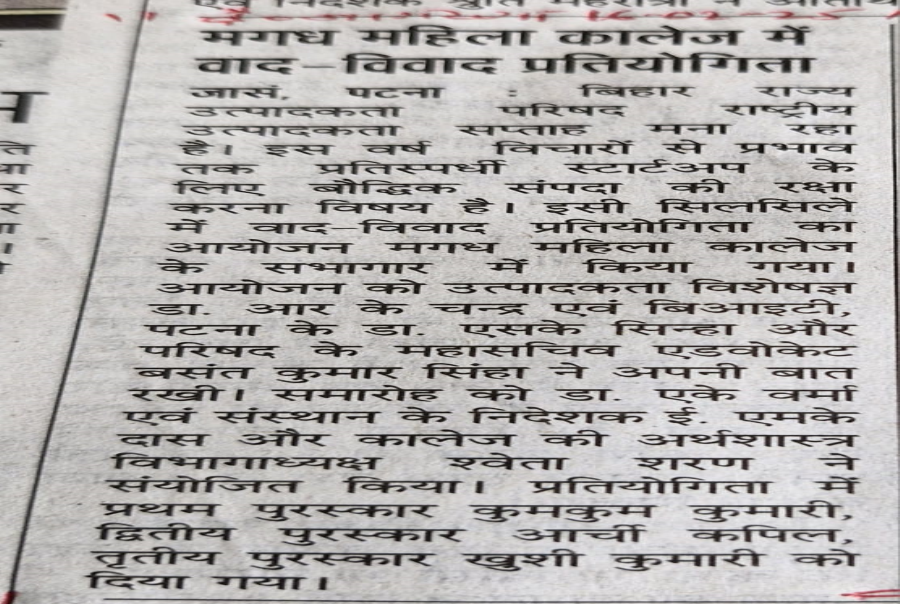 मगध महिला कालेज में
वाद-विवाद प्रतियोगिता
जासं, पटना : बिहार राज्य
उत्पादकता परिषद राष्ट्रीय
उत्पादकता सप्ताह मना रहा
है। इस वर्ष विचारों से प्रभाव
तक प्रतिस्पर्धी स्टार्टअप के
लिए बौद्धिक संपदा की रक्षा
करना विषय है। इसी सिलसिले
में वाद-विवाद प्रतियोगिता का
आयोजन मगध महिला कालेज
के सभागार में किया गया।
आयोजन को उत्पादकता विशेषज्ञ
डा. आर के चन्द्र एवं बिआइटी,
पटना के डा. एसके सिन्हा और
परिषद के महासचिव एडवोकेट
बसंत कुमार सिंहा ने अपनी बात
रखी। समारोह को डा. एके वर्मा
एवं संस्थान के निदेशक ई. एमके
दास और कालेज की अर्थशास्त्र
विभागाध्यक्ष श्वेता शरण ने
संयोजित किया। प्रतियोगिता में
प्रथम पुरस्कार कुमकुम कुमारी,
द्वितीय पुरस्कार आर्ची कपिल,
तृतीय पुरस्कार खुशी कुमारी को
दिया गया।